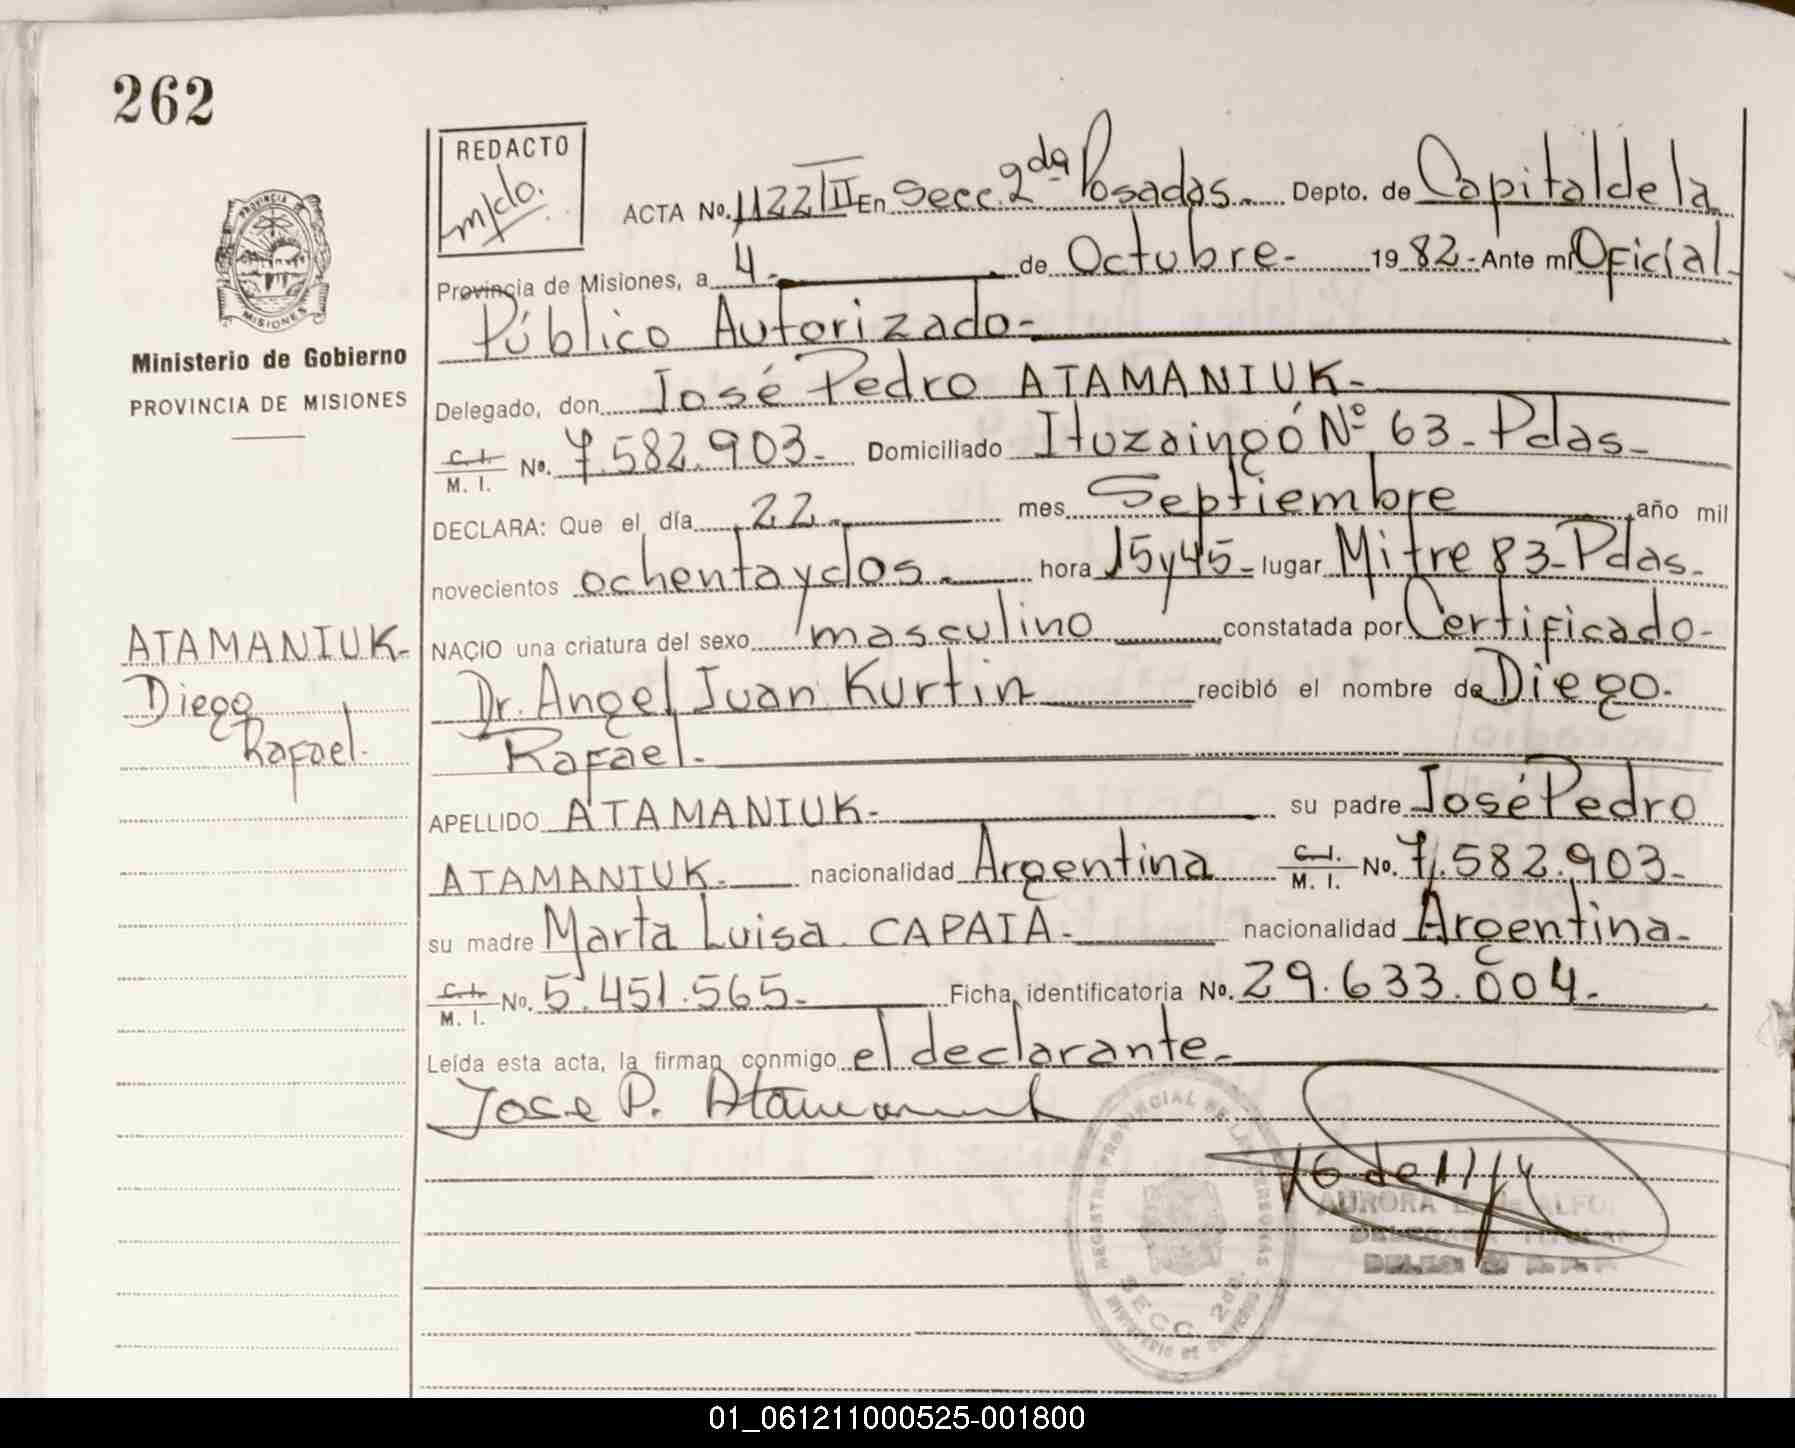 262
REDACTO
m/do.
ACTA No. 1122/II En Secc. 2da Posadas. Depto. de Capital de la
Provincia de Misiones, a 4. de Octubre. 1982. Ante mí Oficial
Público Autorizado.
Delegado, don José Pedro ATAMANIUK.
C. I. / M. I. No. 7.582.903. Domiciliado Ituzaingó Nº 63. Pdas.
DECLARA: Que el día 22. mes Septiembre año mil
novecientos ochenta y dos. hora 15 y 45. lugar Mitre 83. Pdas.
NACIO una criatura del sexo masculino constatada por Certificado.
Dr. Angel Juan Kurtin recibió el nombre de Diego.
Rafael.
APELLIDO ATAMANIUK. su padre José Pedro
ATAMANIUK. nacionalidad Argentina C. I. / M. I. No. 7.582.903.
su madre Marta Luisa CAPAIA. nacionalidad Argentina.
C. I. / M. I. No. 5.451.565. Ficha identificatoria No. 29.633.004.
Leída esta acta, la firman conmigo el declarante.
Jose P. Atamaniuk
MISIONES
Ministerio de Gobierno
PROVINCIA DE MISIONES
ATAMANIUK.
Diego
Rafael.
REGISTRO PROVINCIAL DE LAS PERSONAS
SECC. 2da.
MINISTERIO DE GOBIERNO
AURORA E. de ALFO
01_061211000525-001800